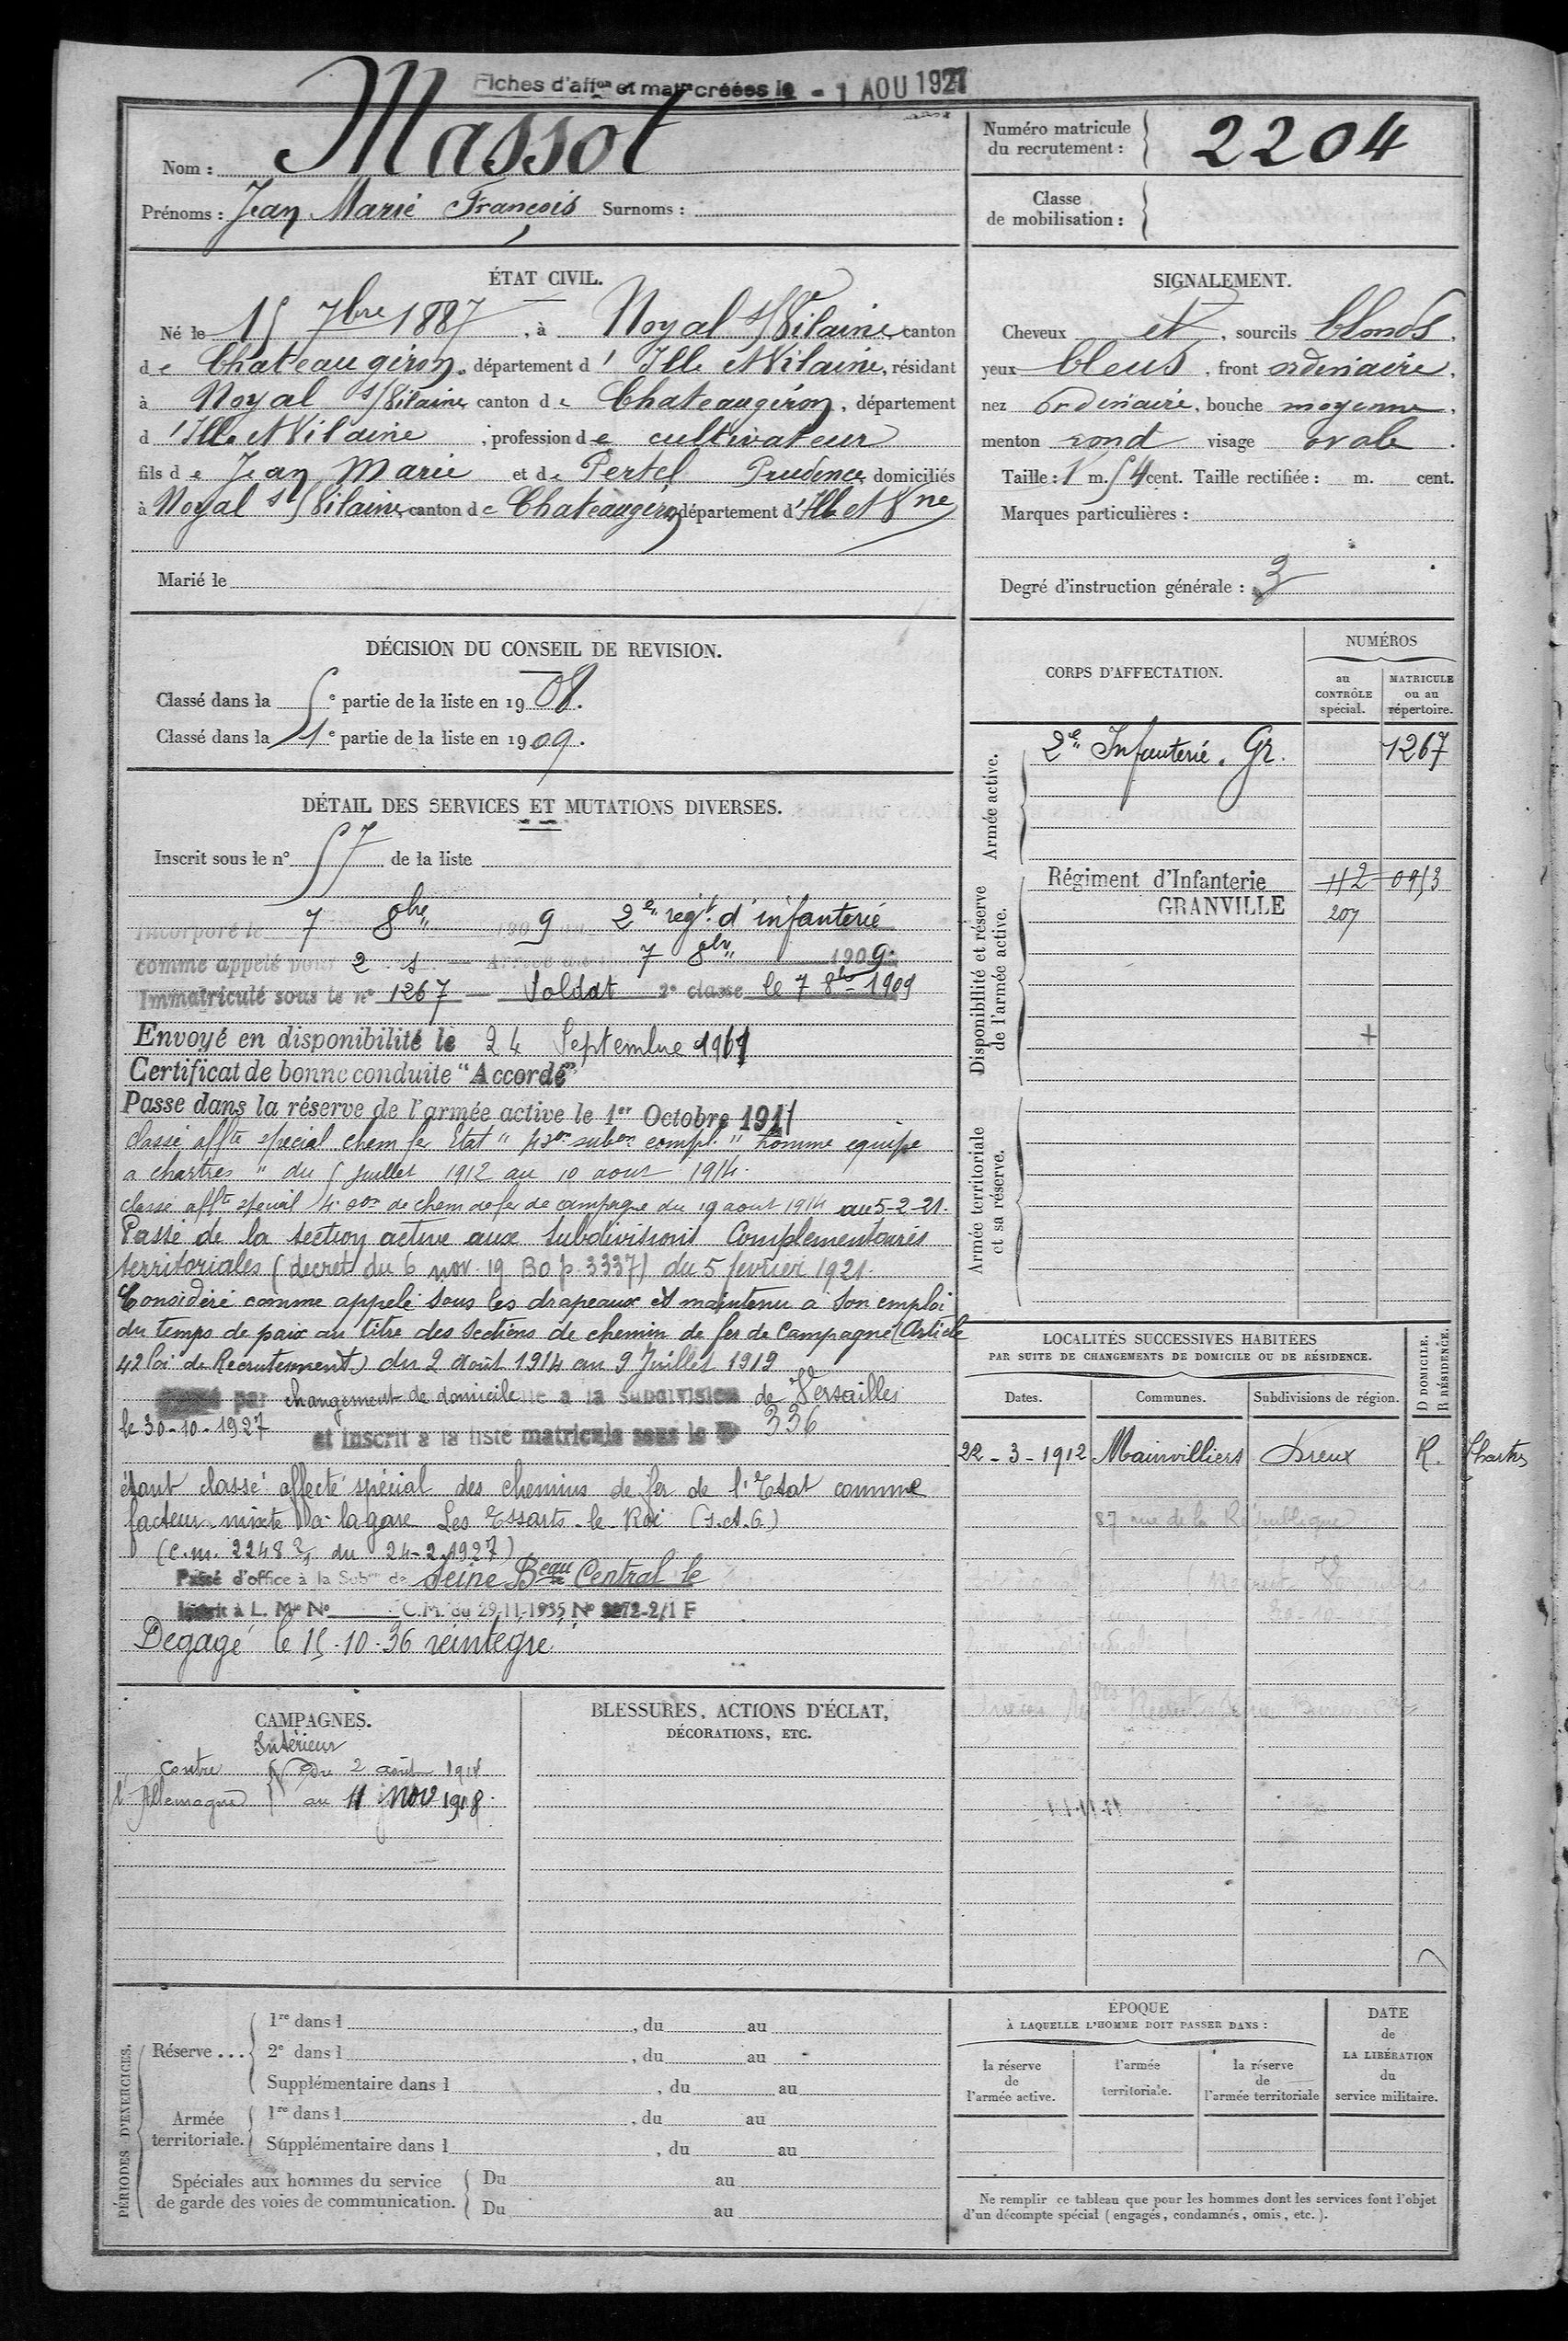 Fiches d'affon et matr créées le - 1 AOU 1927
Nom : Massot
Prénoms : Jean Marie François Surnoms :
Numéro matricule du recrutement : 2204
Classe de mobilisation :
ÉTAT CIVIL.
Né le 15 7bre 1887, à Noyal s/Vilaine, canton
de Chateaugiron, département d'Ille et Vilaine, résidant
à Noyal s/Vilaine, canton de Chateaugiron, département
d'Ille et Vilaine, profession de cultivateur
fils de Jean Marie et de Pertel Prudence, domiciliés
à Noyal s/Vilaine, canton de Chateaugiron, département d'Ille et Vne
Marié le
SIGNALEMENT.
Cheveux et, sourcils blonds,
yeux bleus, front ordinaire,
nez ordinaire, bouche moyenne,
menton rond visage ovale.
Taille : 1 m. 54 cent. Taille rectifiée : m. cent.
Marques particulières :
Degré d'instruction générale : 3
DÉCISION DU CONSEIL DE REVISION.
Classé dans la 5e partie de la liste en 1908.
Classé dans la 1e partie de la liste en 1909.
DÉTAIL DES SERVICES ET MUTATIONS DIVERSES.
Inscrit sous le n° 57 de la liste
Incorporé le 7 8bre 1909 au 2e regt d'infanterie
comme appelé pour 2 s — Arrivé au 7 8bre 1909.
Immatriculé sous le n° 1267 — Soldat 2e classe le 7 8bre 1909
Envoyé en disponibilité le 24 Septembre 1911
Certificat de bonne conduite "Accordé"
Passé dans la réserve de l'armée active le 1er Octobre 1911
Classé affté spécial chem fer Etat " 42e subon compl. " homme equipe
a chartres " du 5 Juillet 1912 au 10 aout 1914.
classé affté special 4e son de chem de fer de campagne du 19 aout 1914 au 5-2-21.
Passé de la section active aux Subdivisions Complementaires
territoriales (decret du 6 nov. 19 BO p. 3337) du 5 fevrier 1921.
Considéré comme appelé sous les drapeaux et maintenu à son emploi
du temps de paix au titre des Sections de chemin de fer de Campagne (Article
42 loi de Recrutement) du 2 Août 1914 au 9 Juillet 1919
par changement de domicile à la subdivision de Versailles
le 30-10-1927 et inscrit à la liste matricule sous le N° 336
étant classé affecté spécial des chemins de fer de l'Etat comme
facteur mixte à la gare Les Essarts-le-Roi (s.A.6)
(C.M. 2248 3/ du 24-2-1927)
Passé d'office à la Subon de Seine Beau Central le
Inscrit à L. Mle N° C.M. du 29-11-1935 N° 3272-2/1 F
Dégagé le 15-10-36 réintégré
CORPS D'AFFECTATION.
NUMÉROS
au CONTRÔLE spécial.
MATRICULE ou au répertoire.
Armée active.
2e Infanterie. Gr. 1267
Disponibilité et réserve de l'armée active.
Régiment d'Infanterie 112 0953
GRANVILLE 207
+
Armée territoriale et sa réserve.
LOCALITÉS SUCCESSIVES HABITÉES
PAR SUITE DE CHANGEMENTS DE DOMICILE OU DE RÉSIDENCE.
Dates. Communes. Subdivisions de région. D DOMICILE. R RÉSIDENCE.
22-3-1912 Mainvilliers Dreux R. Chartres
87 rue de la République
CAMPAGNES.
Intérieur
Contre l'Allemagne du 2 août 1914
au 11 Nov 1918.
BLESSURES, ACTIONS D'ÉCLAT,
DÉCORATIONS, ETC.
PÉRIODES D'EXERCICES.
Réserve ...
1re dans l , du au
2e dans l , du au
Supplémentaire dans l , du au
Armée territoriale.
1re dans l , du au
Supplémentaire dans l , du au
Spéciales aux hommes du service
de garde des voies de communication.
Du au
Du au
ÉPOQUE
À LAQUELLE L'HOMME DOIT PASSER DANS :
la réserve de l'armée active.
l'armée territoriale.
la réserve de l'armée territoriale
DATE de LA LIBÉRATION du service militaire.
Ne remplir ce tableau que pour les hommes dont les services font l'objet
d'un décompte spécial (engagés, condamnés, omis, etc.).